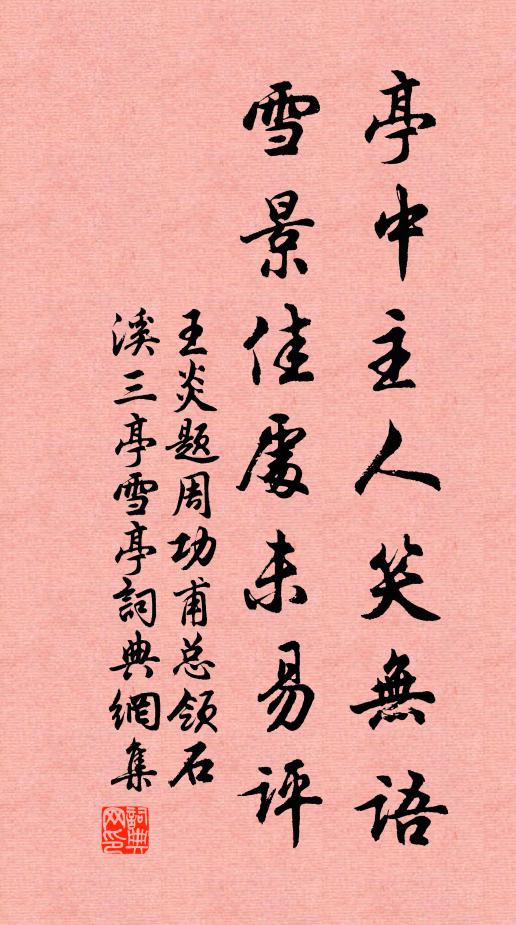 亭中主人笑無語
雪景佳處未易評
王炎题周功甫总领石
溪三亭雪亭詞典網集
詞典网印